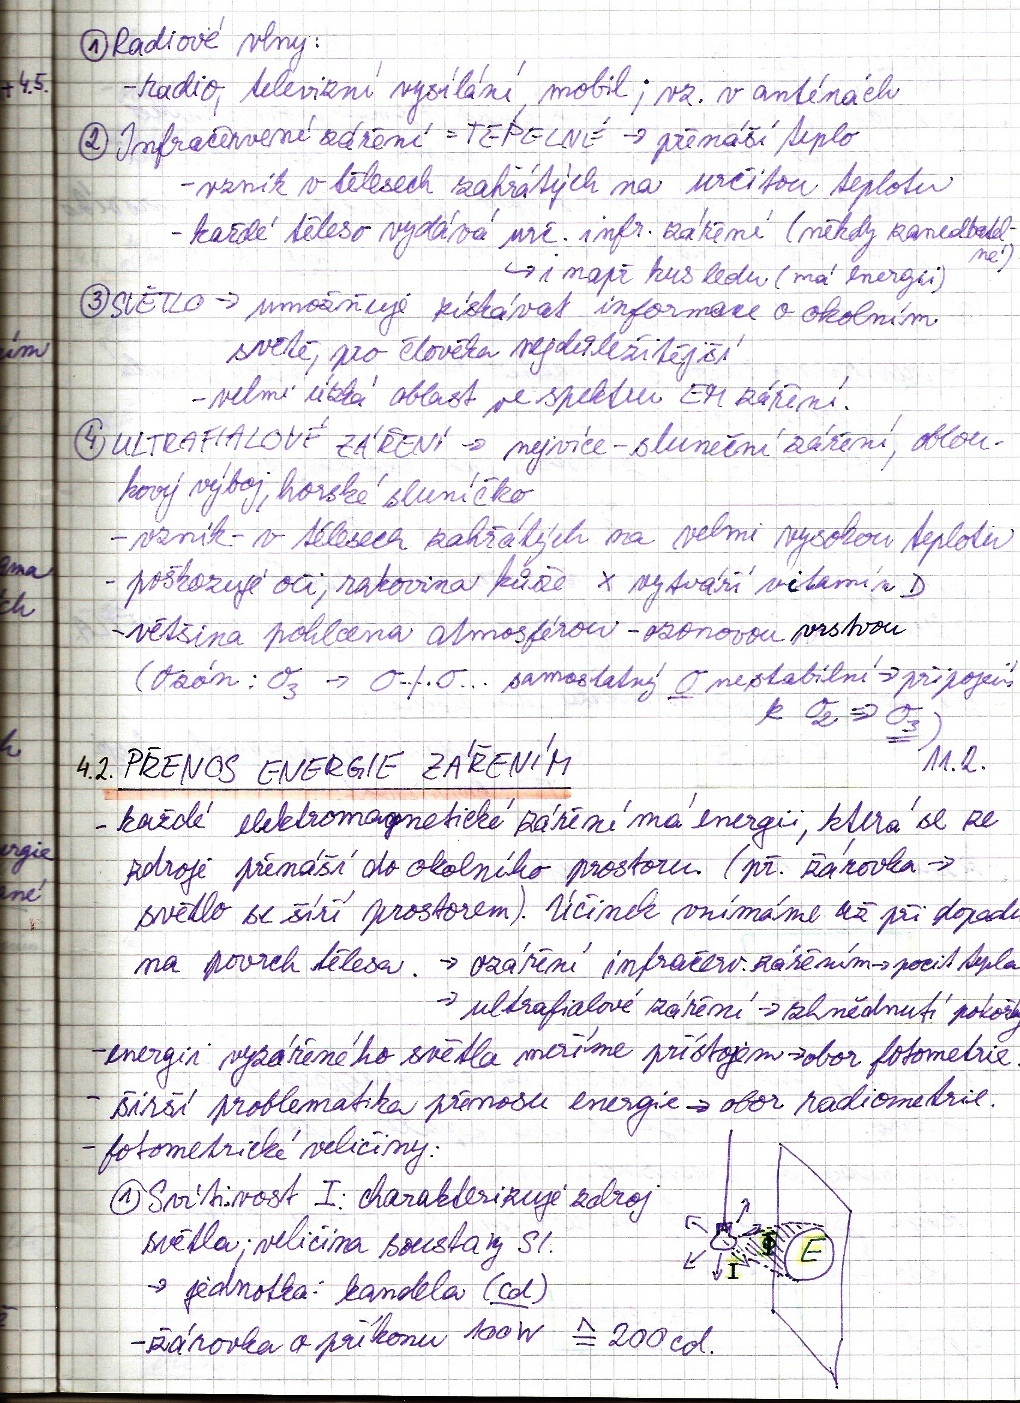 ① Radiové vlny:
+4.5.
- radio, televizní vysílání, mobil; vz. v anténách
② Infračervené záření = TEPELNÉ → přenáší teplo
- vznik v tělesech zahřátých na určitou teplotu
- každé těleso vydává urč. infr. záření (někdy zanedbatel-
né)
↳ i např kus ledu (má energii)
③ SVĚTLO → umožňuje získávat informace o okolním
světě, pro člověka nejdůležitější
- velmi úzká oblast ve spektru EM záření.
④ ULTRAFIALOVÉ ZÁŘENÍ → nejvíce - sluneční záření, oblou-
kový výboj, horské sluníčko
- vznik - v tělesech zahřátých na velmi vysokou teplotu
- poškozuje oči, rakovina kůže x vytváří vitamin D
- většina pohlcena atmosférou - ozonovou vrstvou
(Ozón: O₃ → O-/.O... samostatný O nestabilní → připojení
k O₂ ⇒ O₃)
4.2. PŘENOS ENERGIE ZÁŘENÍM 11.2.
- každé elektromagnetické záření má energii, která se ze
zdroje přenáší do okolního prostoru. (př. žárovka →
světlo se šíří prostorem). Účinek vnímáme až při dopadu
na povrch tělesa. → ozáření infračerv. zářením → pocit tepla
→ ultrafialové záření → zhnědnutí pokožky
- energii vyzářeného světla meříme přístojem → obor fotometrie.
- širší problematika přenosu energie → obor radiometrie.
- fotometrické veličiny:
① Svítivost I: charakterizuje zdroj
světla; veličina soustavy SI.
→ jednotka: kandela (cd)
- žárovka o příkonu 100W ≙ 200cd.
Φ E
I